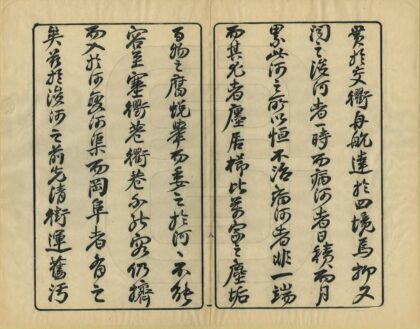 於交衢舟航達於四境焉抑又
聞之浚河者一時而病河者日積而月
累此河之所以恒不治病河者非一端
而其尤者廛居櫛比萬家之塵垢
百物之腐蛻舉而委之於河河不能
容至塞衢巷衢巷不能容仍擠
而入於河變河渠而岡阜者有之
矣茲於浚河之前先清街運舊污
八